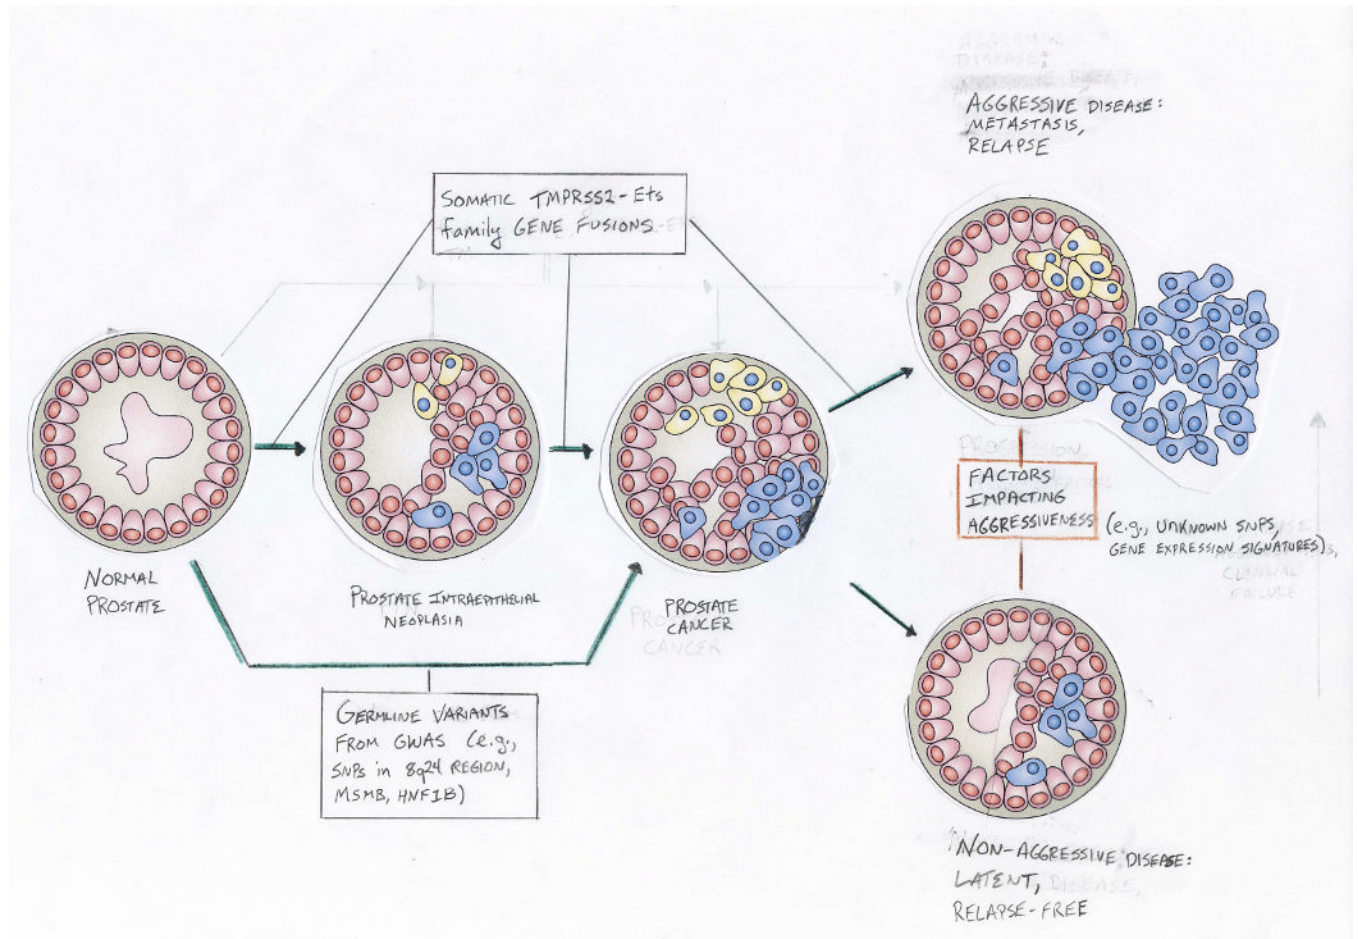 AGGRESSIVE DISEASE:
METASTASIS,
RELAPSE
SOMATIC TMPRSS2-Ets
family GENE FUSIONS
NORMAL
PROSTATE
PROSTATE INTRAEPITHELIAL
NEOPLASIA
PROSTATE
CANCER
FACTORS
IMPACTING
AGGRESSIVENESS
(e.g., UNKNOWN SNPs,
GENE EXPRESSION SIGNATURES)
GERMLINE VARIANTS
FROM GWAS (e.g.,
SNPs in 8q24 REGION,
MSMB, HNF1B)
NON-AGGRESSIVE DISEASE:
LATENT,
RELAPSE-FREE
PROGRESSION
PROSTATE
CANCER
CLINICAL
FAILURE
DISEASE,
DISEASE;